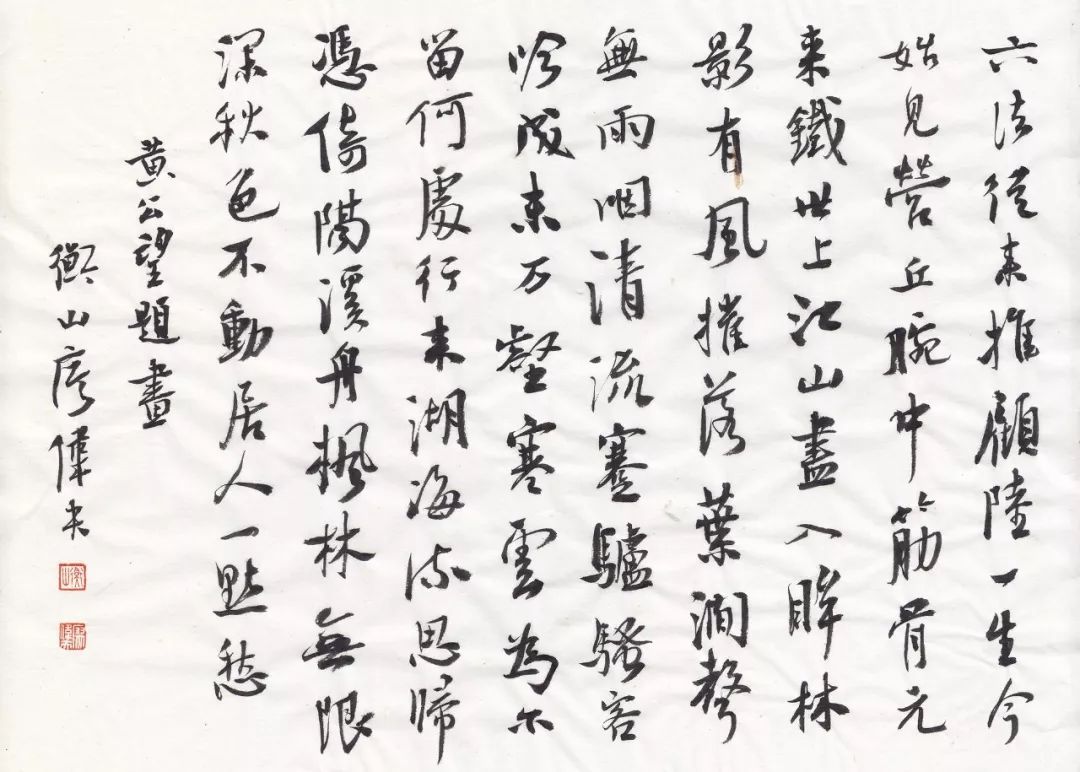 六法從来推顧陸一生今
始見營丘腕中筋骨元
来鐵世上江山盡入眸林
影有風摧落葉澗聲
無雨咽清流蹇驢騷客
吟成未万壑寒雲為尔
留何處行来湖海流思歸
憑倚隔溪舟楓林無限
深秋色不動居人一點愁
黄公望題畫
衡山廖偉夫